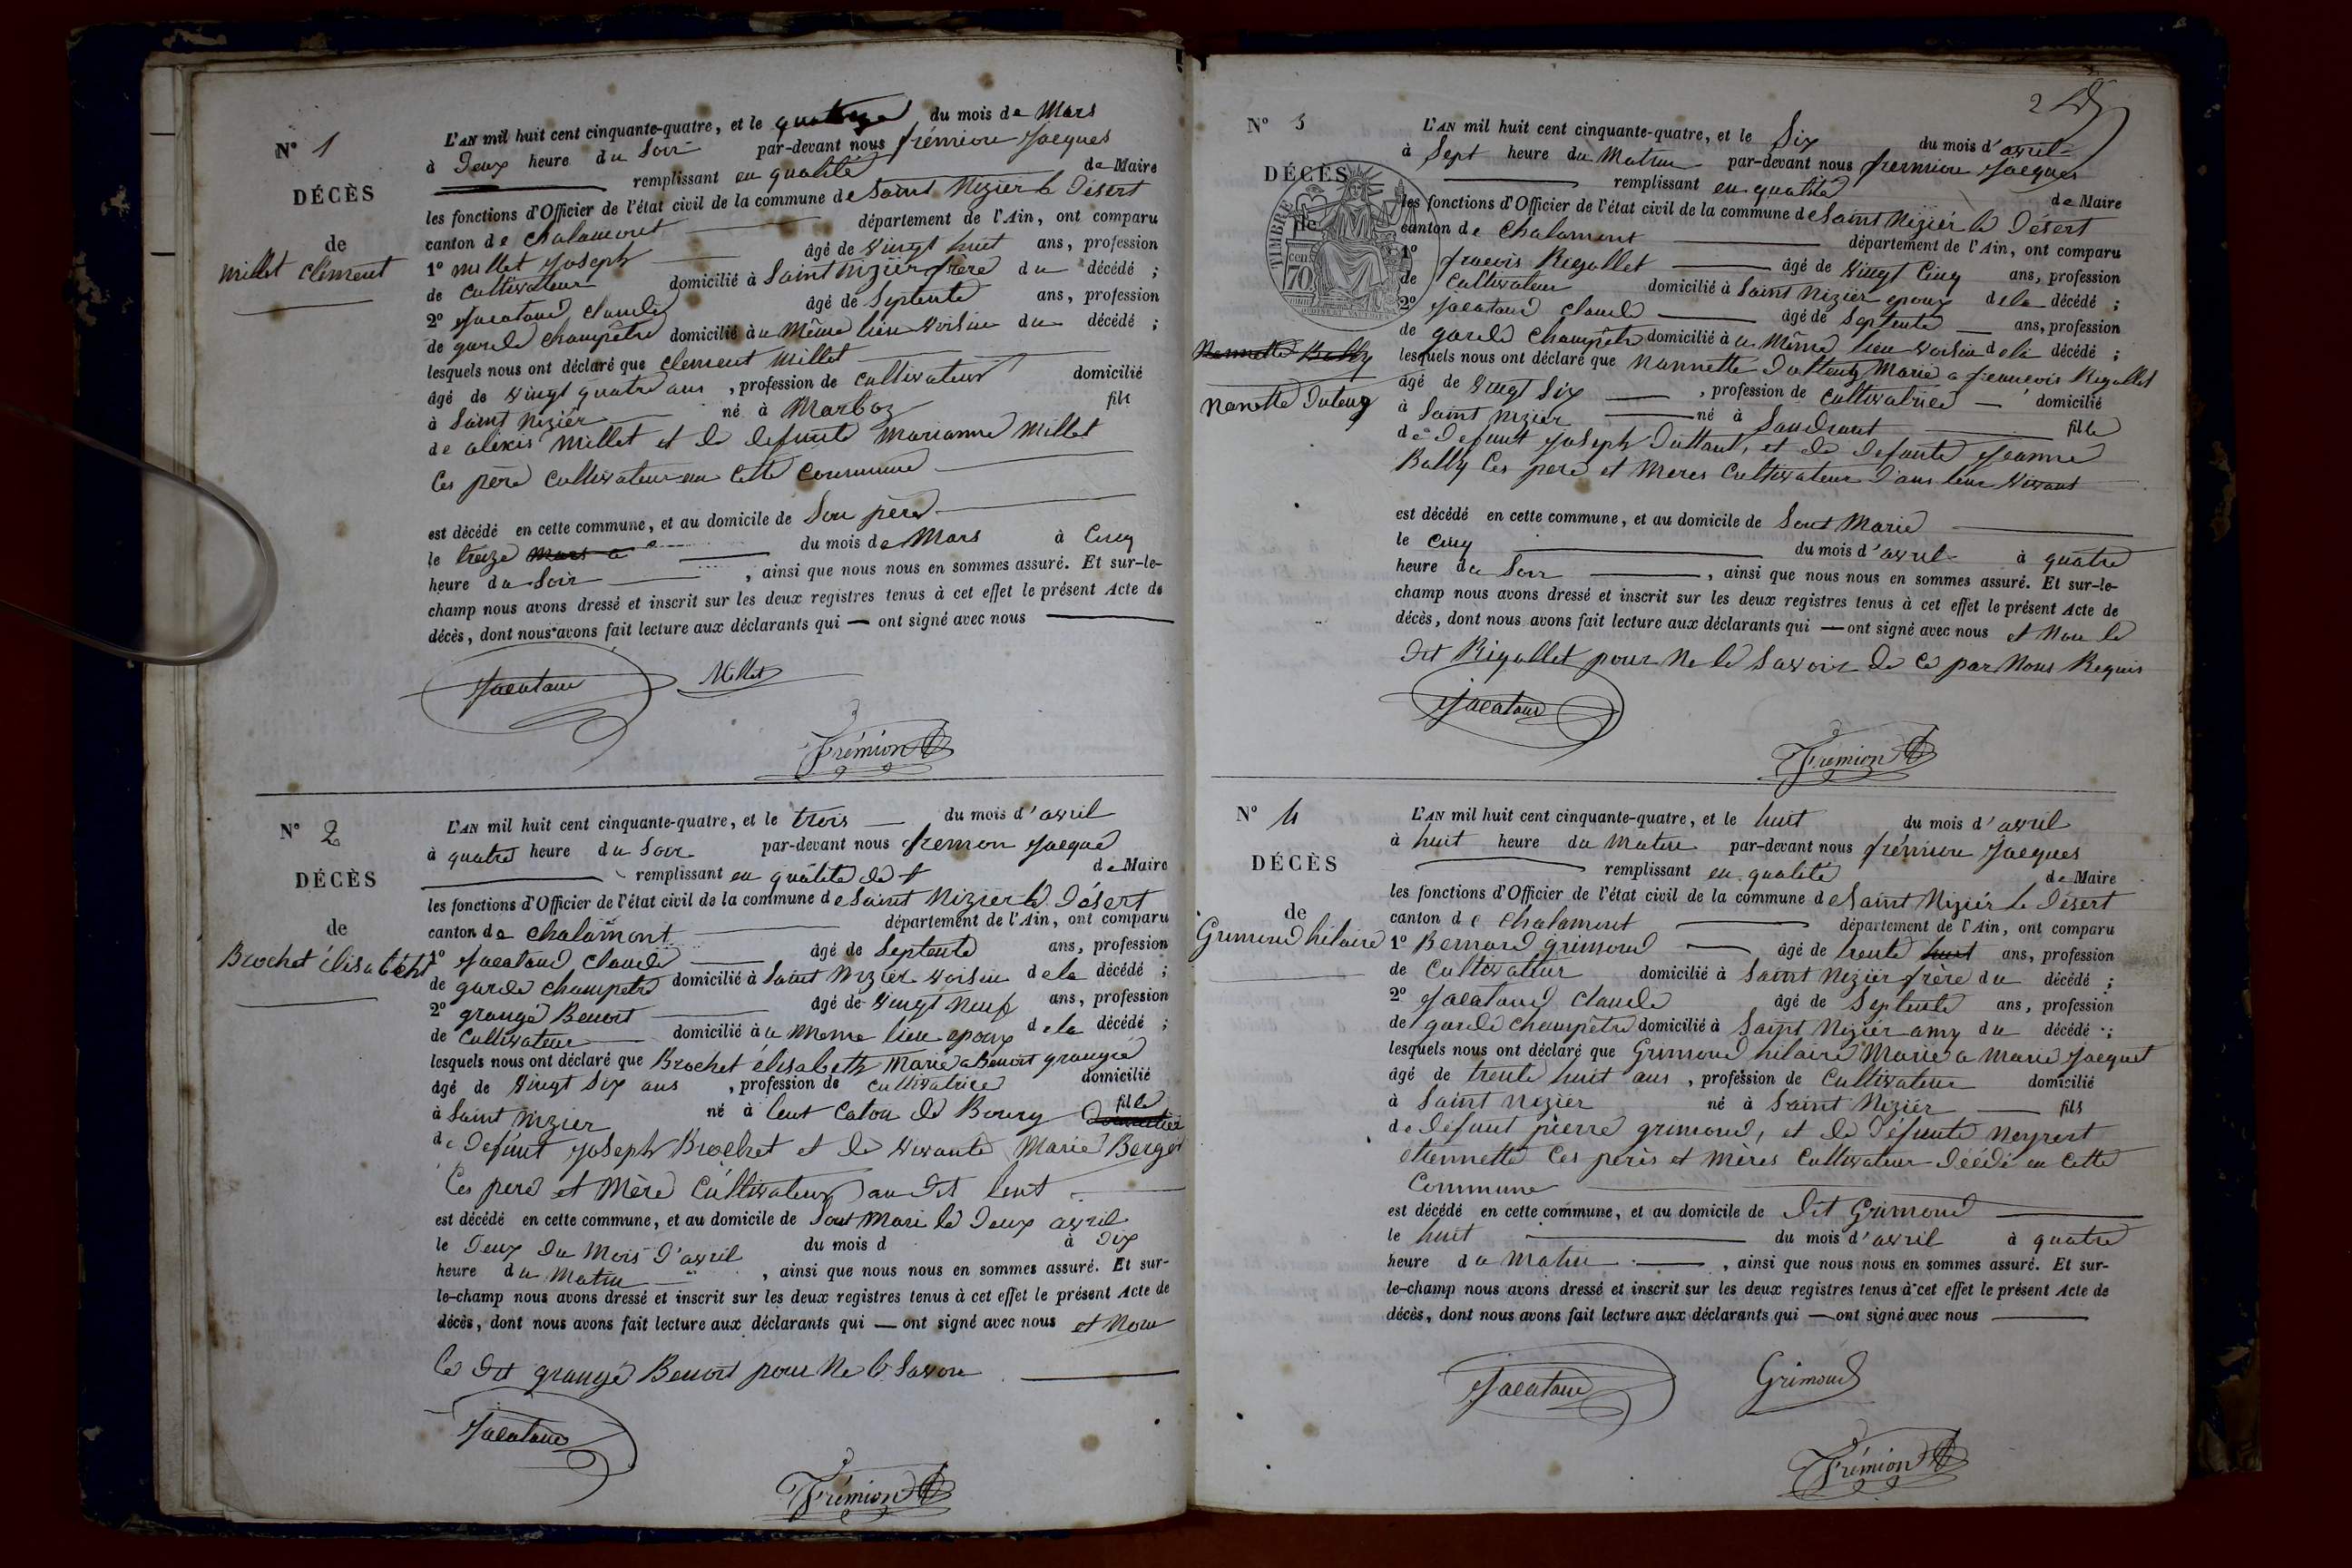 N° 1
DÉCÈS
de
Millet Clément
L'AN mil huit cent cinquante-quatre, et le quatorze du mois de Mars
à Deux heure du Soir par-devant nous frémion Jacques
remplissant en qualité de Maire
les fonctions d'Officier de l'état civil de la commune de Saint Nizier le Désert
canton de Chalamont département de l'Ain, ont comparu
1° Millet Joseph âgé de Vingt huit ans, profession
de Cultivateur domicilié à Saint Nizier frère du décédé ;
2° Jacatond Claude âgé de Septente ans, profession
de garde champêtre domicilié à u Même lieu Voisin du décédé ;
lesquels nous ont déclaré que Clement Millet
âgé de Vingt quatre ans , profession de Cultivateur domicilié
à Saint Nizier né à Marboz fils
de alexis Millet et de defunte Marianne Millet
Ces père Cultivateur en Cette Commune
est décédé en cette commune, et au domicile de Son père
le treize Mars a du mois de Mars à Cinq
heure du Soir , ainsi que nous nous en sommes assuré. Et sur-le-
champ nous avons dressé et inscrit sur les deux registres tenus à cet effet le présent Acte de
décès, dont nous avons fait lecture aux déclarants qui — ont signé avec nous
Millet
Frémion
N° 2
DÉCÈS
de
Brochet élisabteht
L'AN mil huit cent cinquante-quatre, et le trois du mois d'avril
à quatre heure du Soir par-devant nous fremion Jacque
remplissant en qualité de de Maire
les fonctions d'Officier de l'état civil de la commune de Saint Nizier le Désert
canton de Chalamont département de l'Ain, ont comparu
1° Jacatond Claude âgé de Septente ans, profession
de garde champetre domicilié à Saint Nizier Voisin de la décédé ;
2° grange Benoit âgé de Vingt neuf ans, profession
de Cultivateur domicilié à u Meme lieu epoux de la décédé ;
lesquels nous ont déclaré que Brochet élisabeth Marié a Benoit grange
âgé de Vingt Six ans , profession de Cultivatrice domicilié
à Saint Nizier né à lent Caton de Bourg fille
de Defunt Joseph Brochet et de Vivante Marie Berger
Ces pere et Mère Cultivateur au dit lent
est décédé en cette commune, et au domicile de Sont Mari le Deux avril
le Deux Du Mois D'avril du mois d à Dix
heure du Matin , ainsi que nous nous en sommes assuré. Et sur-
le-champ nous avons dressé et inscrit sur les deux registres tenus à cet effet le présent Acte de
décès, dont nous avons fait lecture aux déclarants qui — ont signé avec nous et Non
le dit grange Benoit pour Ne le Savoir
Frémion
2
N° 3
DÉCÈS
de
TIMBRE
70
Nannette Bally
Nanette Duteuz
L'AN mil huit cent cinquante-quatre, et le Six du mois d'avril
à Sept heure du Matin par-devant nous fremion Jacques
remplissant en qualité de Maire
les fonctions d'Officier de l'état civil de la commune de Saint Nizier le Désert
canton de Chalamont département de l'Ain, ont comparu
1° francois Rigollet âgé de Vingt Cinq ans, profession
de Cultivateur domicilié à Saint Nizier epoux de la décédé ;
2° Jacatond Claude âgé de Septente ans, profession
de garde Champêtre domicilié à u Même lieu Voisin de la décédé ;
lesquels nous ont déclaré que Nannette Marié a francois Rigollet
âgé de Vingt Six , profession de Cultivatrice domicilié
à Saint Nizier né à Sandrant fille
de Defunt Joseph et de Defunte Jeanne
Bally Ces pere et Meres Cultivateur Dans leur Vivant
est décédé en cette commune, et au domicile de Sont Marie
le Cinq du mois d'avril à quatre
heure du Soir , ainsi que nous nous en sommes assuré. Et sur-le-
champ nous avons dressé et inscrit sur les deux registres tenus à cet effet le présent Acte de
décès, dont nous avons fait lecture aux déclarants qui — ont signé avec nous et Non le
dit Rigollet pour Ne le Savoir de Ce par Nous Requis
Frémion
N° 4
DÉCÈS
de
Grimond hilaire
L'AN mil huit cent cinquante-quatre, et le huit du mois d'avril
à huit heure du Matin par-devant nous frémion Jacques
remplissant en qualité de Maire
les fonctions d'Officier de l'état civil de la commune de Saint Nizier le Désert
canton de Chalamont département de l'Ain, ont comparu
1° Bernard Grimond âgé de trente huit ans, profession
de Cultivateur domicilié à Saint Nizier frère du décédé ;
2° Jacatond Claude âgé de Septente ans, profession
de garde champêtre domicilié à Saint Nizier amy du décédé ;
lesquels nous ont déclaré que Grimond hilaire Marié a Marie Jacquet
âgé de trente huit ans , profession de Cultivateur domicilié
à Saint Nizier né à Saint Nizier fils
de défunt pierre grimond, et de Défunte Neyrest
étiennette Ces perès et mères Cultivateur Déédé en Cette
Commune
est décédé en cette commune, et au domicile de Dit Grimond
le huit du mois d'avril à quatre
heure du Matin , ainsi que nous nous en sommes assuré. Et sur-
le-champ nous avons dressé et inscrit sur les deux registres tenus à cet effet le présent Acte de
décès, dont nous avons fait lecture aux déclarants qui — ont signé avec nous
Grimond
Frémion